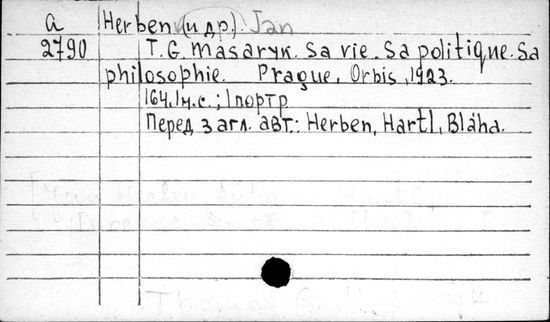 a Herben (и др.) Jan
2790 T. G. Masaryk. Sa vie. Sa politique. Sa
philosophie. Prague, Orbis, 1923.
164, 1 н.с.; 1 портр
Перед загл. авт.: Herben, Hartl, Bláha.